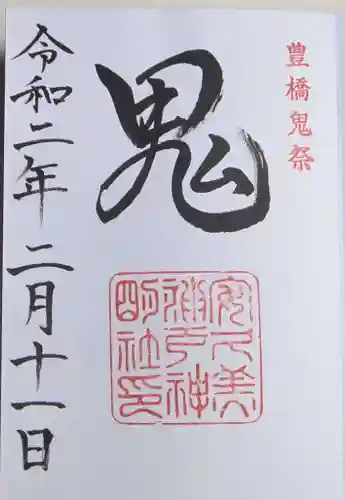 豊橋鬼祭
鬼
安久美
神戸神
明社印
令和二年二月十一日